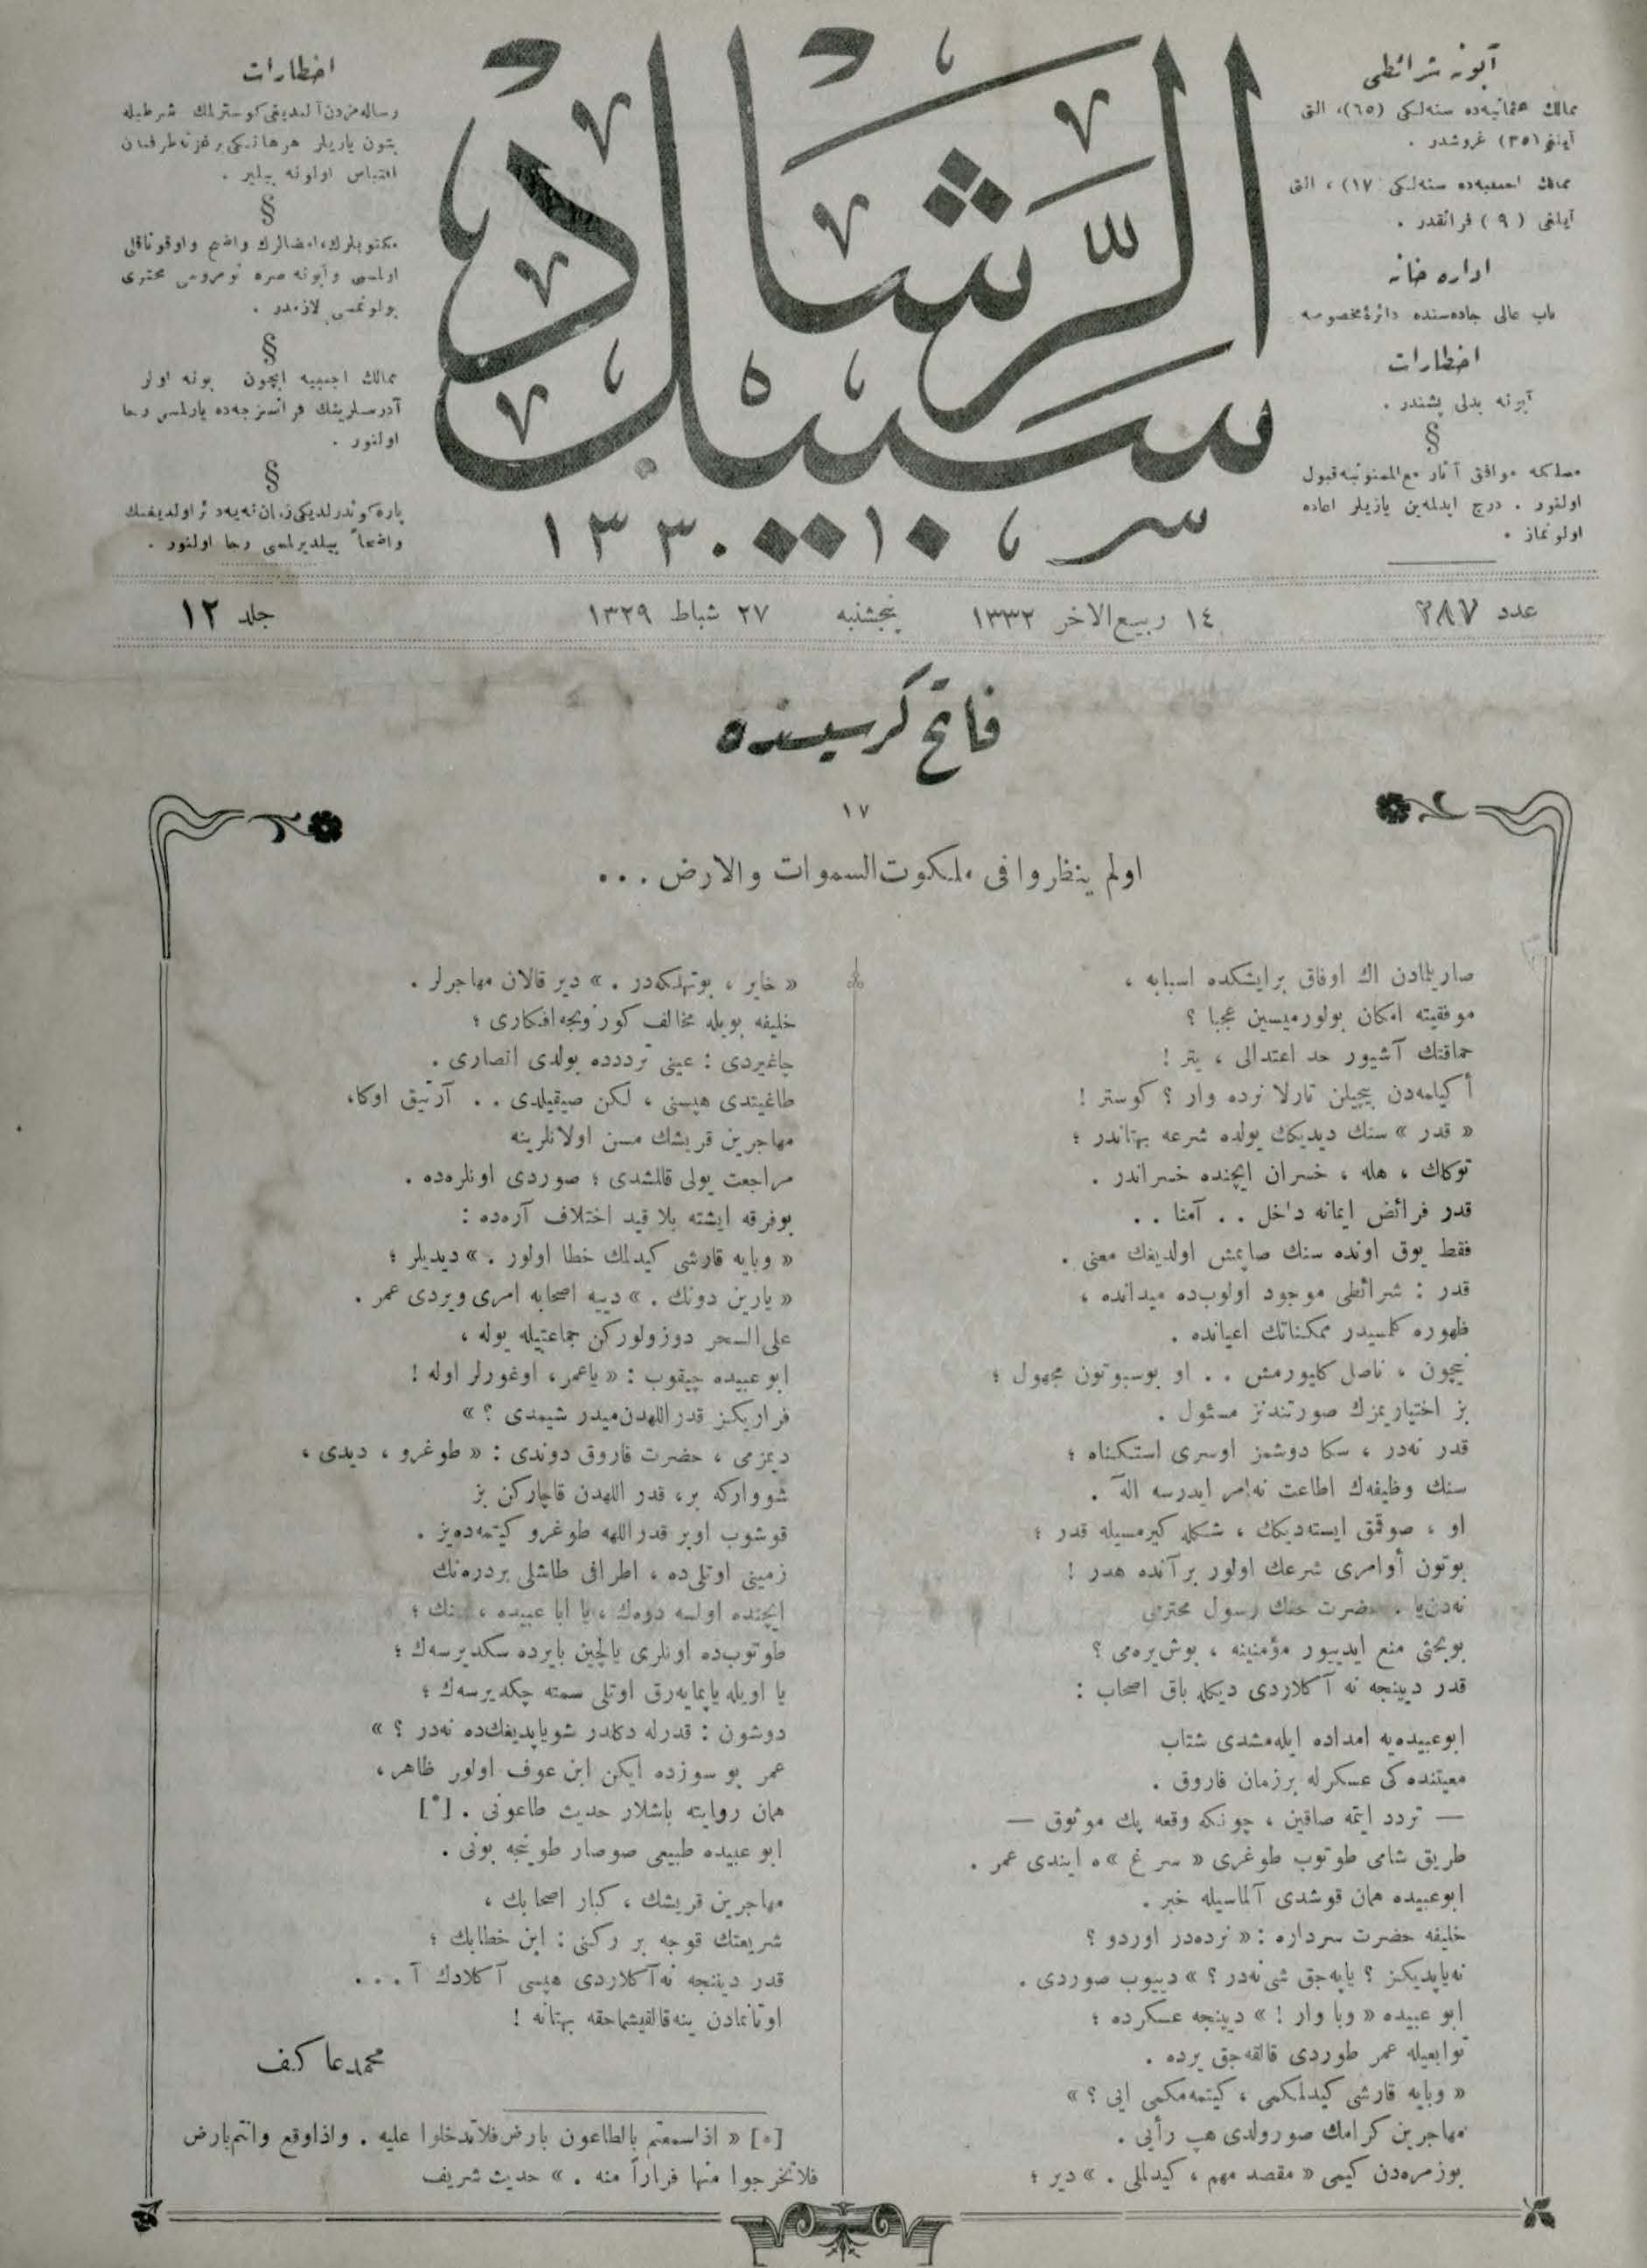 آبونه شرائطی
ممالك عثمانیه‌ده سنه‌لکی (٦٥)، التی
آیلغی (٣٥) غروشدر .
ممالك اجنبیه‌ده سنه‌لکی (١٧) ، التی
آیلغی (٩) فرانقدر .
اداره خانه
باب عالی جاده‌سنده دائرۀ مخصوصه
اخطارات
آبونه بدلی پشیندر .
§
مسلکه موافق آثار مع‌الممنونیه قبول
اولنور . درج ایدلمه‌ین یازیلر اعاده
اولونماز .
سبیل الرّشاد
سر ١٠ ١٣٣٠
اخطارات
رساله‌مزدن آلندیغی کوسترلمك شرطیله
بتون یازیلر هر هانکی بر غزته طرفندن
اقتباس اولونه بیلیر .
§
مکتوبلرك، امضالرك واضح و اوقوناقلی
اولمسی و آبونه صره نومروسی محتوی
بولونمسی لازمدر .
§
ممالك اجنبیه ایچون بونه اولر
آدرسلرینك فرانسزجه‌ده یازلمسی رجا
اولنور .
§
پاره کوندرلدیکی زمان نه‌یه دئر اولدیغنك
واضحاً بیلدیرلمسی رجا اولنور .
عدد ٢٨٧
١٤ ربیع‌الاخر ١٣٣٢ پنجشنبه ٢٧ شباط ١٣٢٩
جلد ١٢
فاتح کرسیسنده
١٧
اولم ینظروا فی ملکوت‌السموات والارض ...
صاریلمادن اك اوفاق بر ایشکده اسبابه ،
موفقیته امکان بولورمیسین عجبا ؟
حماقتك آشیور حد اعتدالی ، یتر !
أکیلمه‌دن بیچیلن تارلا نرده وار ؟ کوستر !
« قدر » سنك دیدیکك یولده شرعه بهتاندر ؛
توکلك ، هله ، خسران ایچنده خسراندر .
قدر فرائض ایمانه داخل . . آمنا . .
فقط یوق اونده سنك صاپمش اولدیغك معنی .
قدر : شرائطی موجود اولوب‌ده میدانده ،
ظهوره کلمسیدر ممکناتك اعیانده .
نیچون ، ناصل کلیورمش . . او بوسبوتون مجهول ؛
بز اختیاریمزك صورتندنز مسئول .
قدر نه‌در ، سکا دوشمز اوسری استکناه ؛
سنك وظیفه‌ك اطاعت نه امر ایدرسه اله .
او ، صوقمق ایسته‌دیکك ، شکله کیرمسیله قدر ؛
بوتون أوامری شرعك اولور برآنده هدر !
نه‌دن‌یا . حضرت حقك رسول محترمی
بوبحثی منع ایدییور مؤمنینه ، بوش‌یره‌می ؟
قدر دیینجه نه آکلاردی دیکله باق اصحاب :
ابوعبیده‌یه امداده ایله‌مشدی شتاب
معیتنده کی عسکرله برزمان فاروق .
— تردد ایتمه صاقین ، چونکه وقعه پك موثوق —
طریق شامی طوتوب طوغری « سرغ »ه ایندی عمر .
ابوعبیده همان قوشدی آلماسیله خبر .
خلیفه حضرت سرداره : « نرده‌در اوردو ؟
نه‌یاپدیکز ؟ یاپه‌جق شی نه‌در ؟ » دییوب صوردی .
ابو عبیده « وبا وار ! » دیینجه عسکرده ؛
توابعیله عمر طوردی قالقه‌جق یرده .
« وبایه قارشی کیدلمکمی ، کیتمه‌مکمی ایی ؟ »
مهاجرین کرامك صورولدی هپ رأیی .
بوزمره‌دن کیمی « مقصد مهم ، کیدلملی . » دیر ؛
« خایر ، بوتهلکه‌در . » دیر قالان مهاجرلر .
خلیفه بویله مخالف کورونجه افکاری ؛
چاغیردی : عینی ترددده بولدی انصاری .
طاغیتدی هپسنی ، لکن صیقیلدی . . آرتیق اوکا،
مهاجرین قریشك مسن اولانلرینه
مراجعت یولی قالمشدی ؛ صوردی اونلره‌ده .
بوفرقه ایشته بلا قید اختلاف آره‌ده :
« وبایه قارشی کیدلمك خطا اولور . » دیدیلر ؛
« یارین دونك . » دییه اصحابه امری ویردی عمر .
علی‌السحر دوزولورکن جماعتیله یوله ،
ابو عبیده چیقوب : « یاعمر، اوغورلر اوله !
فراریکز قدراللهدن‌میدر شیمدی ؟ »
دیمزمی ، حضرت فاروق دوندی : « طوغرو ، دیدی ،
شووارکه بر، قدر اللهدن قاچارکن بز
قوشوب اوبر قدراللهه طوغرو کیتمه‌ده‌یز .
زمینی اوتلی‌ده ، اطرافی طاشلی بردره‌نك
ایچنده اولسه دوه‌ك ، یا ابا عبیده ، سنك ؛
طوتوب‌ده اونلری یالچین بایرده سکدیرسه‌ك ؛
یا اویله یاپمایه‌رق اوتلی سمته چکدیرسه‌ك ؛
دوشون : قدرله دکلدر شویاپدیغك‌ده نه‌در ؟ »
عمر بو سوزده ایکن ابن عوف اولور ظاهر ،
همان روایته باشلار حدیث طاعونی . [*]
ابو عبیده طبیعی صوصار طوینجه بونی .
مهاجرین قریشك ، کبار اصحابك ،
شریعتك قوجه بر رکنی : ابن خطابك ؛
قدر دیینجه نه‌آکلاردی هپسی آکلادك آ ...
اوتانمادن ینه‌قالقیشماحقه بهتانه !
محمد عاکف
[*] « اذاسمعتم بالطاعون بارض‌فلاتدخلوا علیه . واذاوقع وانتم‌بارض
فلاتخرجوا منها فراراً منه . » حدیث شریف